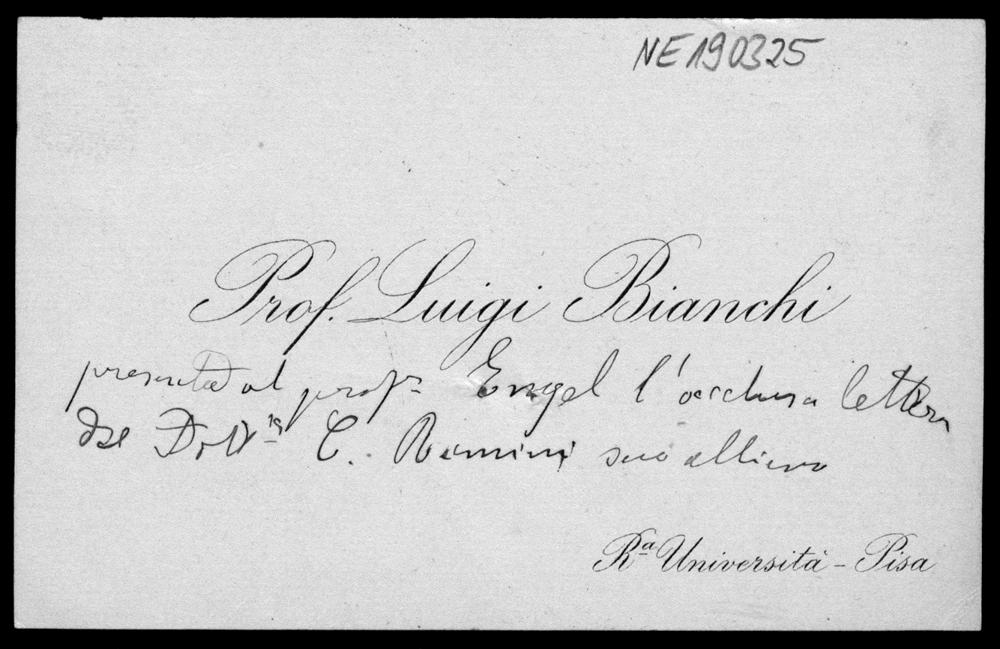 NE190325
Prof. Luigi Bianchi
presenta al prof.r Engel l'acclusa lettera
del Dott.r C. suo allievo
R.a Università - Pisa